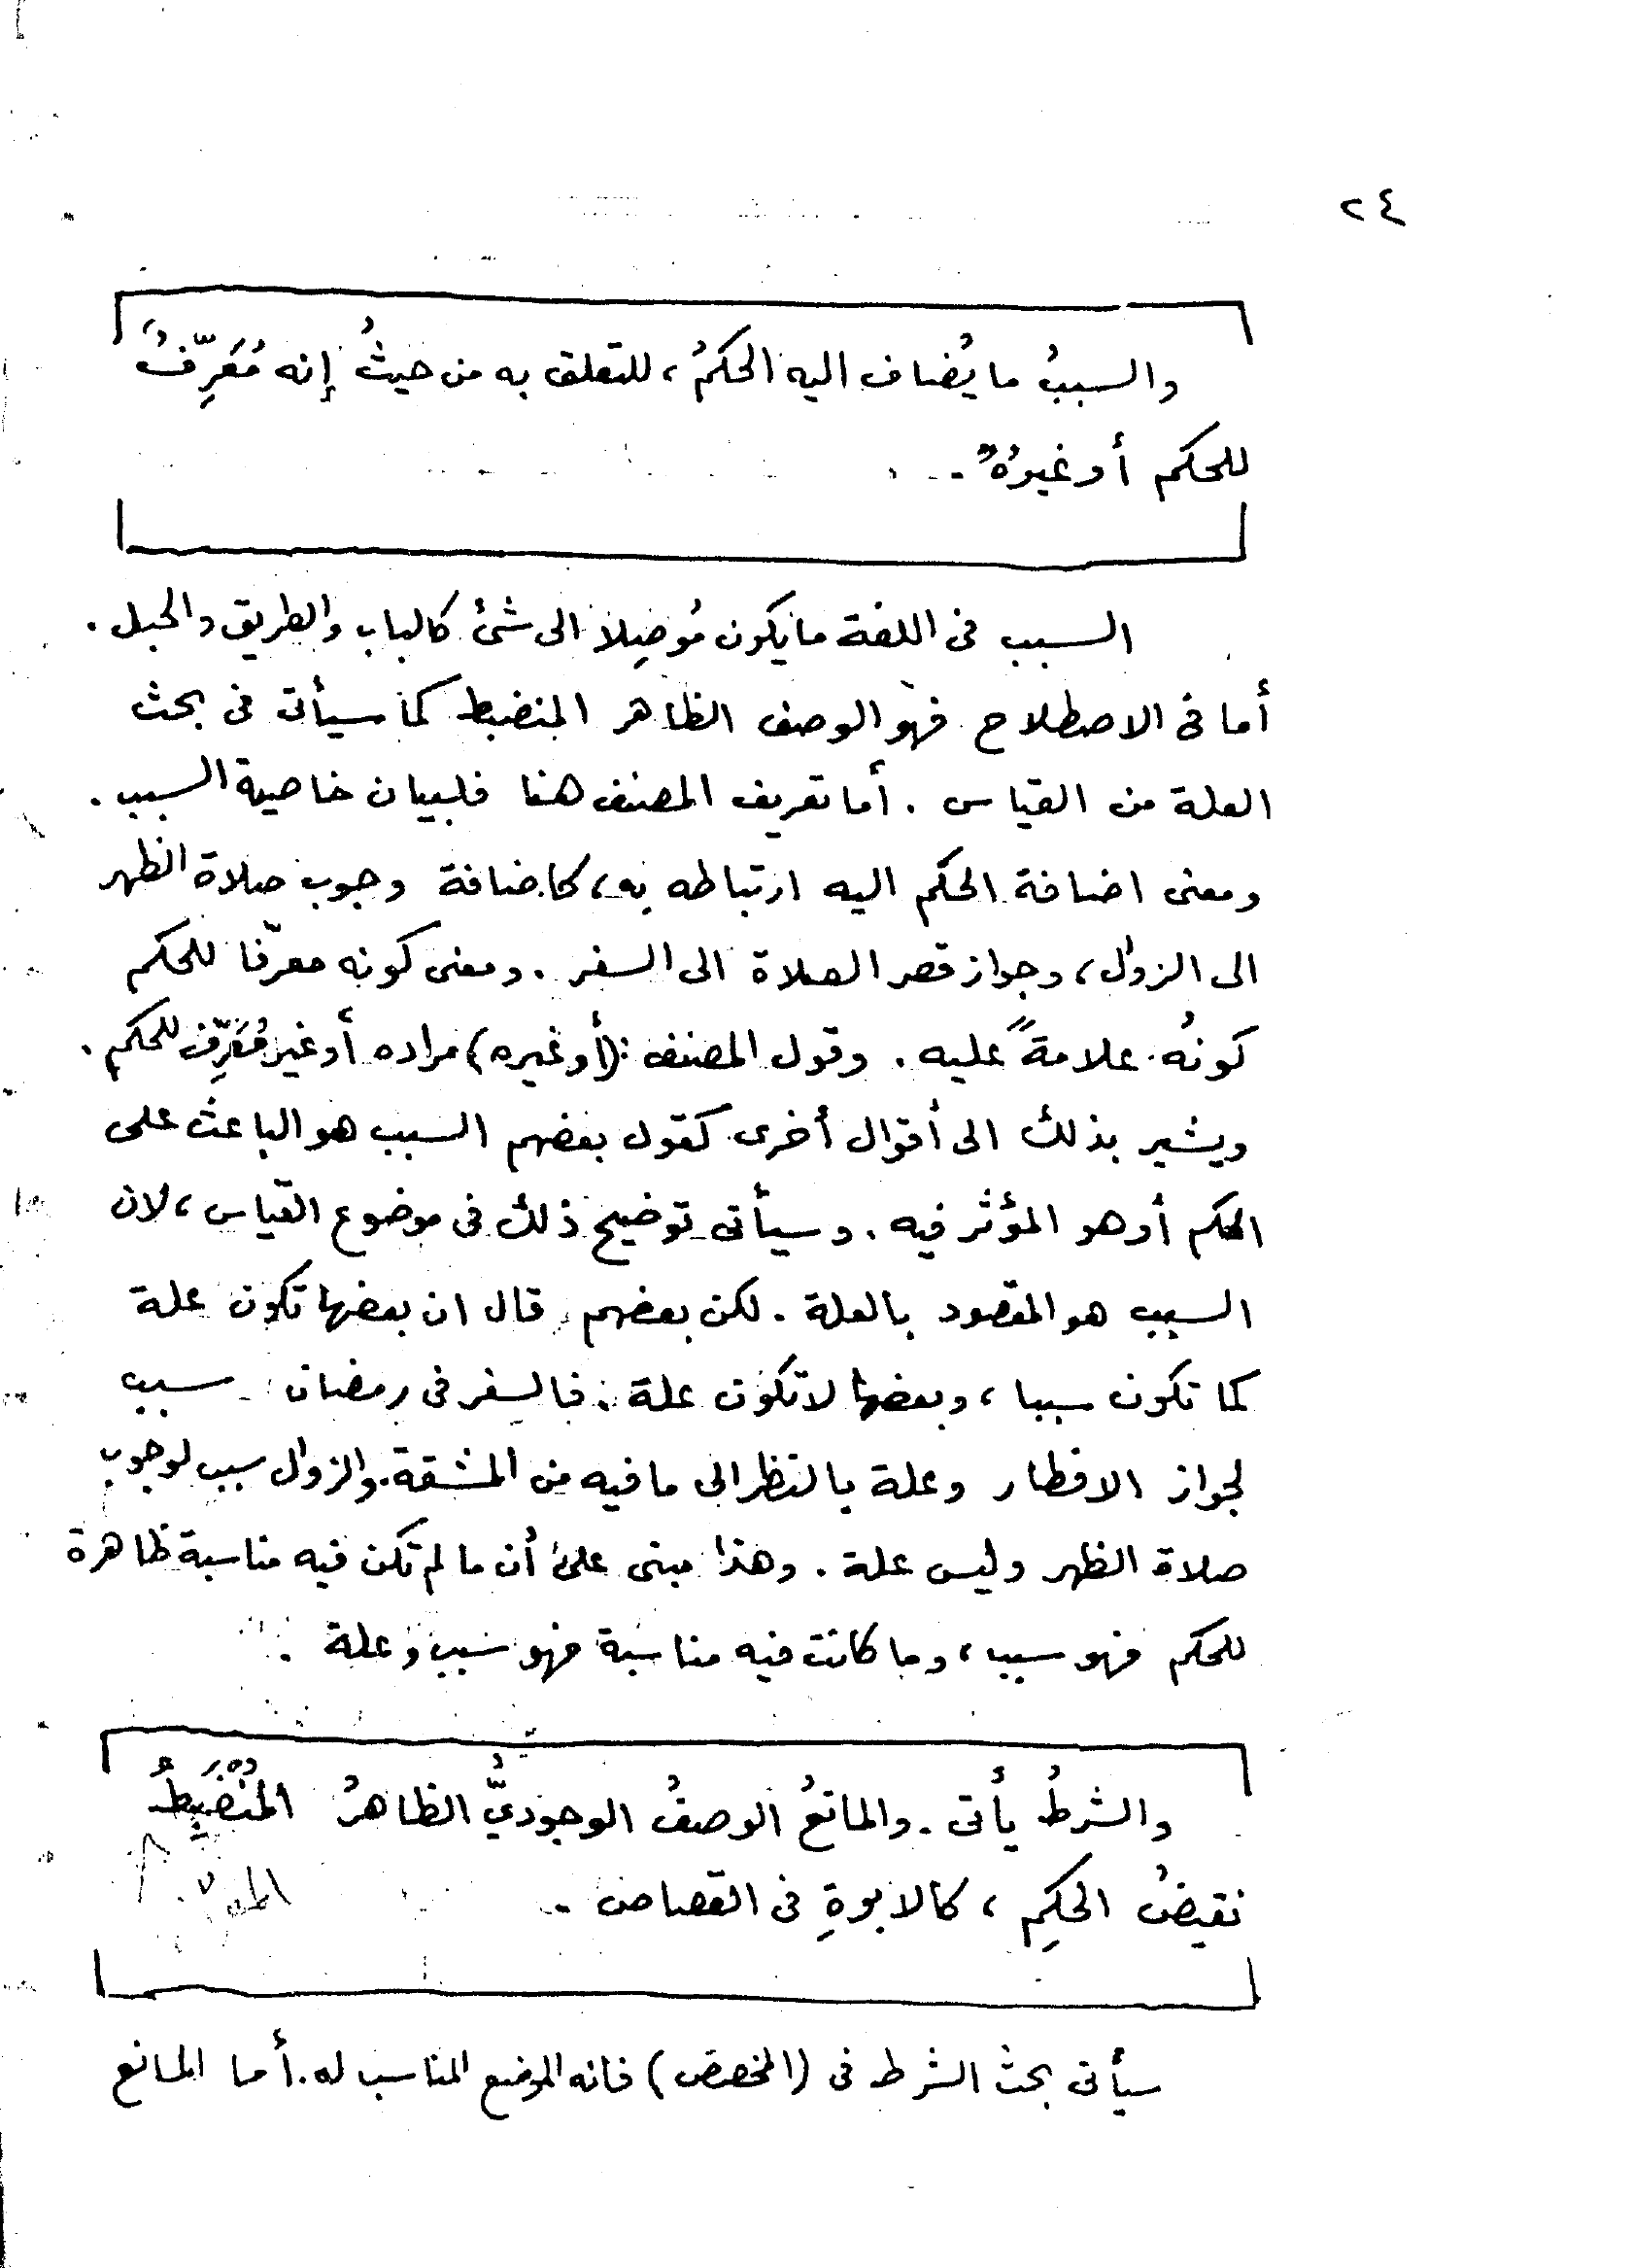 ٢٤
والسببُ ما يُضاف اليه الحكمُ، للتعلق به من حيثُ إنه مُعَرِّفٌ
للحكم أو غيرُهُ .
السبب فى اللغة ما يكون مُوصِلا الى شئ كالباب والطريق والحبل .
أما فى الاصطلاح فهو الوصف الظاهر المنضبط كما سيأتى فى بحث
العلة من القياس . أما تعريف المصنف هنا فلبيان خاصية السبب .
ومعنى اضافة الحكم اليه ارتباطه به، كاضافة وجوب صلاة الظهر
الى الزوال، وجواز قصر الصلاة الى السفر . ومعنى كونه معرّفا للحكم
كونُه علامةً عليه . وقول المصنف :(أو غيره) مراده أو غير مُعَرِّف للحكم .
ويشير بذلك الى أقوال أخرى كقول بعضهم السبب هو الباعث على
الحكم أو هو المؤثر فيه . وسيأتى توضيح ذلك فى موضوع القياس، لان
السبب هو المقصود بالعلة . لكن بعضهم قال ان بعضها تكون علة
كما تكون سببا، وبعضها لا تكون علة . فالسفر فى رمضان سبب
لجواز الافطار وعلة بالنظر الى ما فيه من المشقة . والزوال سبب لوجوب
صلاة الظهر وليس علة . وهذا مبنى على أن ما لم تكن فيه مناسبة ظاهرة
للحكم فهو سبب، وما كانت فيه مناسبة فهو سبب وعلة .
والشرطُ يأتى . والمانعُ الوصفُ الوجوديُّ الظاهرُ المُنْضَبِطُ
نقيضُ الحكمِ، كالابوةِ فى القصاص .
سيأتى بحث الشرط فى (المخصص) فانه الموضع المناسب له . أما المانع